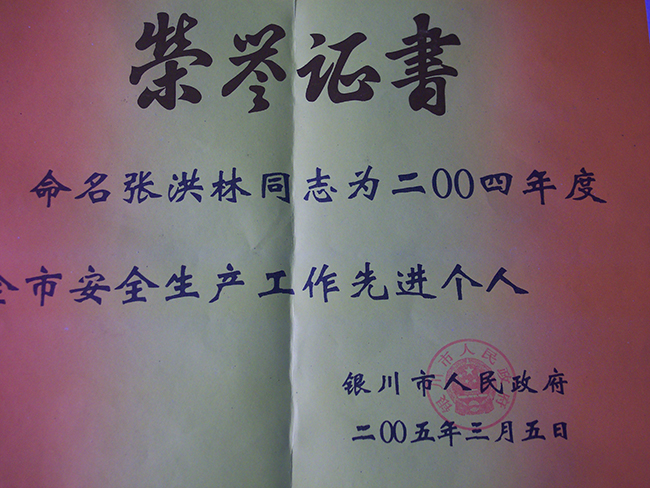 荣誉证书
命名张洪林同志为二00四年度
全市安全生产工作先进个人
银川市人民政府
银川市人民政府
二00五年三月五日